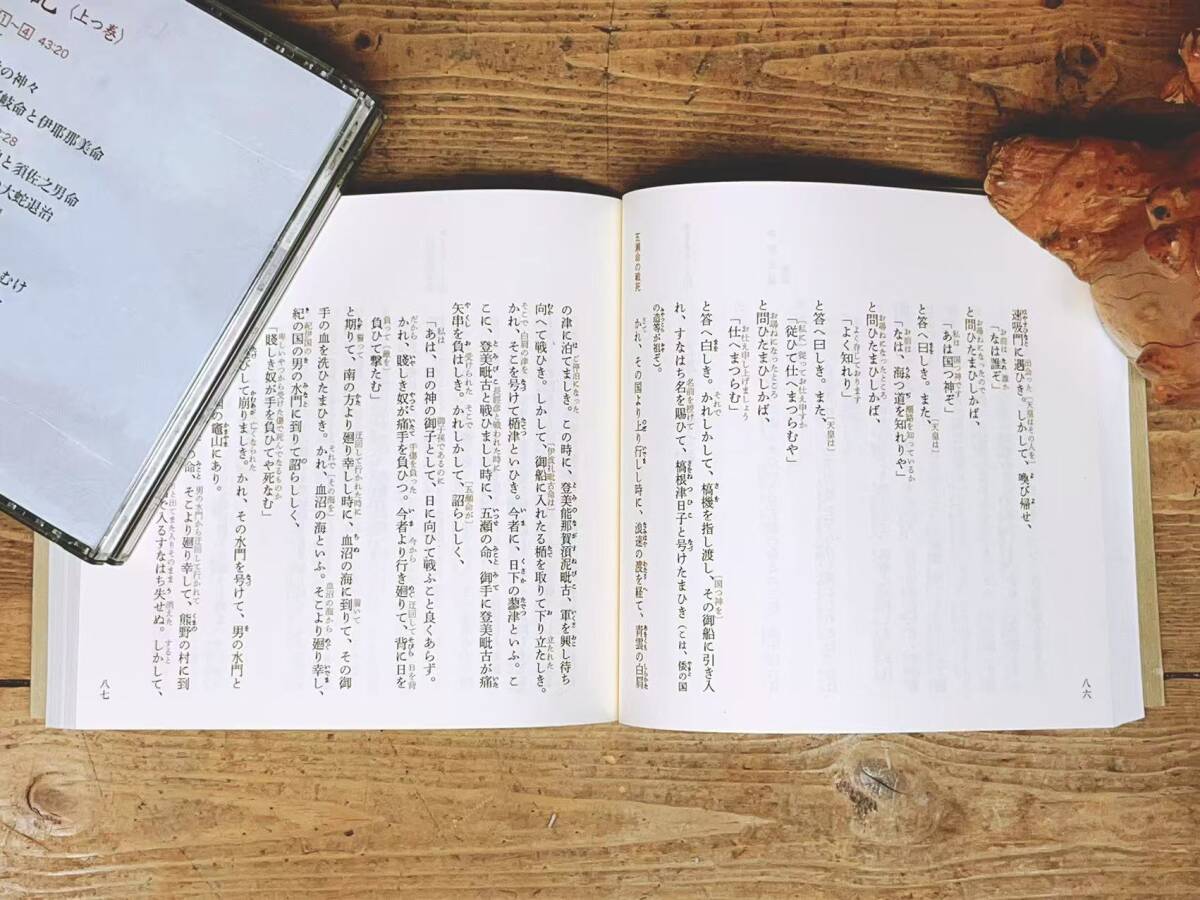 〈上つ巻〉
1~4 43:20
の神々
岐命と伊耶那美命
:28
と須佐之男命
大蛇退治
むけ
速吸門に遇ひき。しかして、喚び帰せ、
「なは誰ぞ」
と問ひたまひしかば、
「あは国つ神ぞ」
と答へ曰しき。また、
「なは、海つ道を知れりや」
と問ひたまひしかば、
「よく知れり」
と答へ曰しき。また、
「従ひて仕へまつらむや」
と問ひたまひしかば、
「仕へまつらむ」
と答へ白しき。かれしかして、槁機を指し渡し、その御船に引き入
れ、すなはち名を賜ひて、槁根津日子と号けたまひき(こは、倭の国
の造等が祖ぞ)。
五瀬命の戦死
かれ、その国より上り行しし時に、浪速の渡を経て、青雲の白肩
八六
の津に泊てましき。この時に、登美能那賀須泥毗古、軍を興し待ち
向へて戦ひき。しかして、御船に入れたる楯を取りて下り立たしき。
かれ、そこを号けて楯津といひき。今者に、日下の蓼津といふ。こ
こに、登美毗古と戦ひましし時に、五瀬の命、御手に登美毗古が痛
矢串を負はしき。かれしかして、詔らししく、
「あは、日の神の御子として、日に向ひて戦ふこと良くあらず。
かれ、賤しき奴が痛手を負ひつ。今者より行き廻りて、背に日を
負ひて撃たむ」
と期りて、南の方より廻り幸しし時に、血沼の海に到りて、その御
手の血を洗ひたまひき。かれ、血沼の海といふ。そこより廻り幸し、
紀の国の男の水門に到りて詔らししく、
「賤しき奴が手を負ひてや死なむ」
びして崩りましき。かれ、その水門を号けて、男の水門と
国の竈山にあり。
の命、そこより廻り幸して、熊野の村に到
出で入るすなはち失せぬ。しかして、
八七